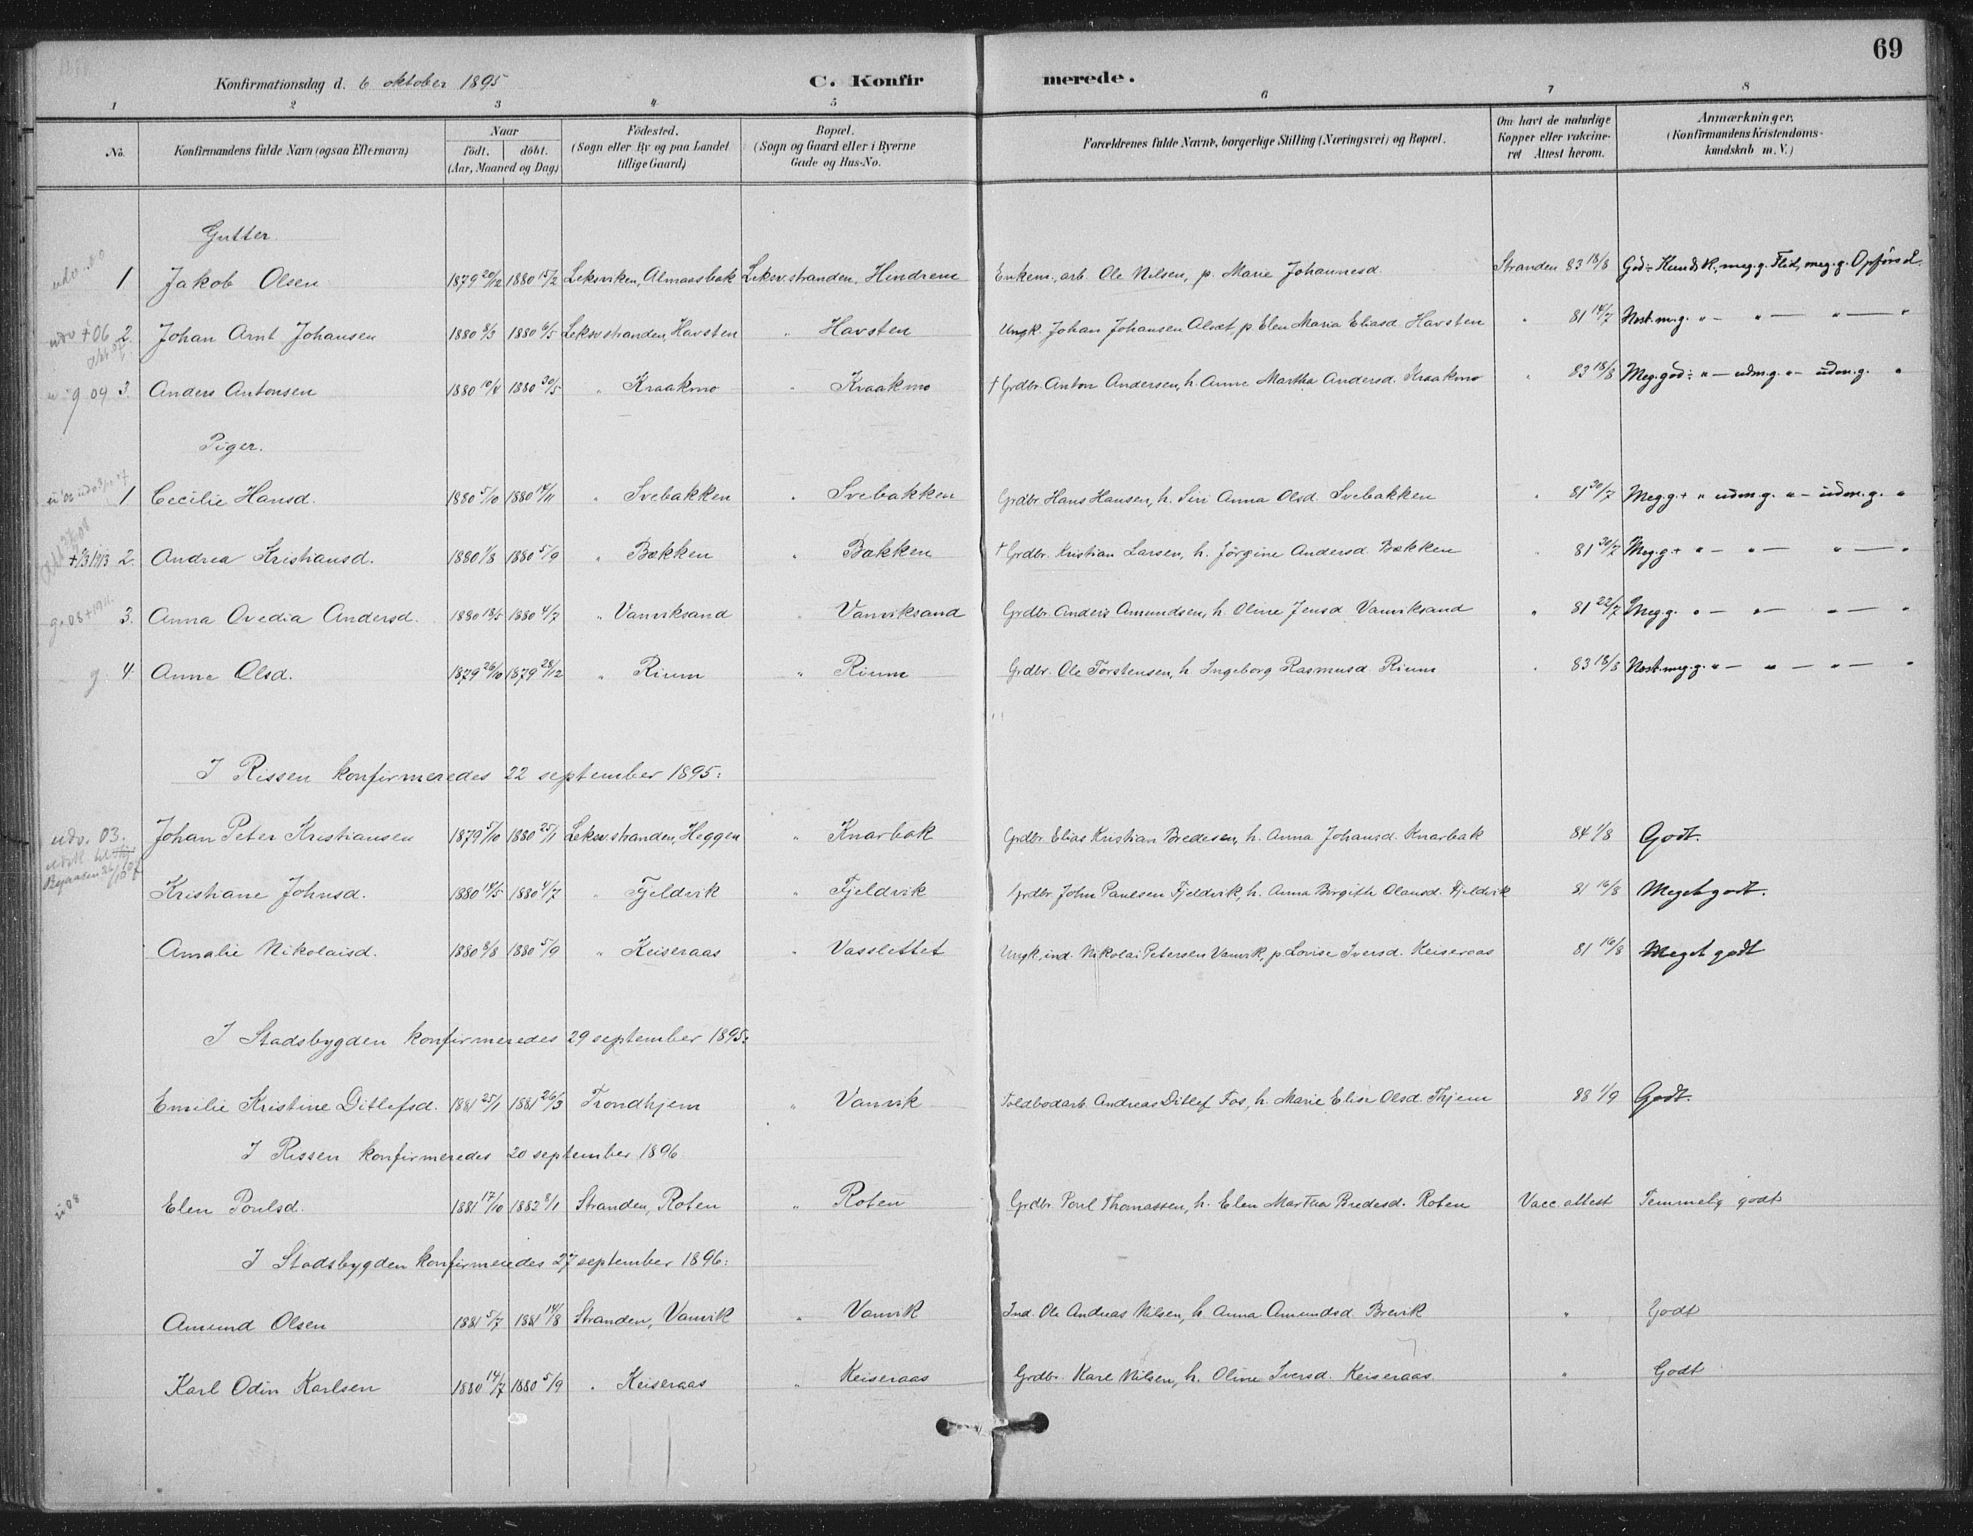 69
Konfirmationsdag d. 6 oktober 1895
C. Konfirmerede.
1 2 3 4 5 6 7 8
No. Konfirmandens fulde Navn (ogsaa Efternavn) Naar födt. döbt. (Aar, Maaned og Dag) Födested. (Sogn eller By og paa Landet tillige Gaard) Bopæl. (Sogn og Gaard eller i Byerne Gade og Hus-No. Forældrenes fulde Navne, borgerlige Stilling (Næringsvei) og Bopæl. Om havt de naturlige Kopper eller vakcineret Attest herom. Anmærkninger. (Konfirmandens Kristendomskundskab m. V.)
Gutter
1 Jakob Olsen 1879 20/12 1880 15/2 Leksviken, Almaasbak Leksv. stranden, Hindrem Enkem. arb. Ole Nilsen, p. Marie Johannesd. Stranden 83 18/8 God÷ Kundsk., meg. g. Flid, meg. g. Opförsel.
udv + 06 2. Johan Arnt Johansen 1880 8/3 1880 6/5 Leksv. stranden, Havsten " Havsten Ungk. Johan Johansen Alvdt p Elen Maria Eliasd Havsten " 81 14/7 Næst. m. g. " — " — " — "
g 09 3. Anders Antonsen 1880 10/4 1880 30/5 " Kraakmo " Kraakmo † Grdbr Anton Andersen, h. Anne Martha Andersd. Kraakmo " 83 18/8 Meg. god÷ " — udm. g. " — udm. g. "
Piger.
1 Cecilie Hansd. 1880 5/10 1880 14/11 " Svebakken " Svebakken Grdbr Hans Hansen, h. Siri Anna Olsd. Svebakken " 81 30/7 Meg. g. + " udm. g. " — udm. g. "
2. Andrea Kristiansd. 1880 1/8 1880 5/9 " Bækken " Bækken † Grdbr. Kristian Larsen, h. Jørgine Andersd. Bækken " 81 30/7 Meg. g. + " — " — " — "
3. Anna Ovedia Andersd. 1880 18/5 1880 4/7 " Vanviksand " Vanviksand Grdbr Anders Amundsen, h. Oline Jensd Vanviksand " 81 22/7 Meg. g. " — " — " — "
g 4. Anne Olsd. 1879 26/10 1879 28/12 " Rium " Rium Grdbr. Ole Torstensen, h Ingeborg Rasmusd Rium " 83 18/8 Næst. meg. g. " — " — " — "
I Rissen konfirmeredes 22 september 1895:
udv. 03. Johan Peter Kristiansen 1879 5/10 1880 25/1 Leksv. stranden, Heggen " Knarbak Grdbr Elias Kristian Bredesen, h. Anna Johansd. Knarbak 84 1/8 Godt.
Kristiane Johnsd. 1880 14/5 1880 4/7 " Fjeldvik " Fjeldvik Grdbr. John Paulsen Fjeldvik, h. Anna Birgith Olausd. Fjeldvik 81 16/8 Meget godt.
Amalie Nikolaisd. 1880 8/8 1880 5/9 " Keiseraas " Vasslettet Ungk. ind. Nikolai Petersen Vanvik, p Lovise Iversd. Keiseraas 81 16/8 Meget godt
I Stadsbygden konfirmeredes 29 september 1895:
Emilie Kristine Ditlefsd. 1881 25/1 1881 26/3 Trondhjem " Vanvik Toldbodarb. Andreas Ditlef Fos, h. Marie Elise Olsd. Thjem 88 1/9 Godt.
I Rissen konfirmeredes 20 september 1896
ü 08 Elen Poulsd. 1881 17/10 1882 8/1 Stranden, Roten " Roten Grdbr. Poul Thomassen, h. Elen Martha Bredesd. Roten Vacc. attest Temmelig godt
I Stadsbygden konfirmeredes 27 september 1896:
Amund Olsen 1881 5/7 1881 14/8 Stranden, Vanvik " Vanvik Ind. Ole Andreas Nilsen, h Anna Amundsd Brevik " Godt
Karl Odin Karlsen 1880 14/7 1880 5/9 " Keiseraas " Keiseraas Grdbr. Karl Nilsen, h. Oline Iversd. Keiseraas. " Godt